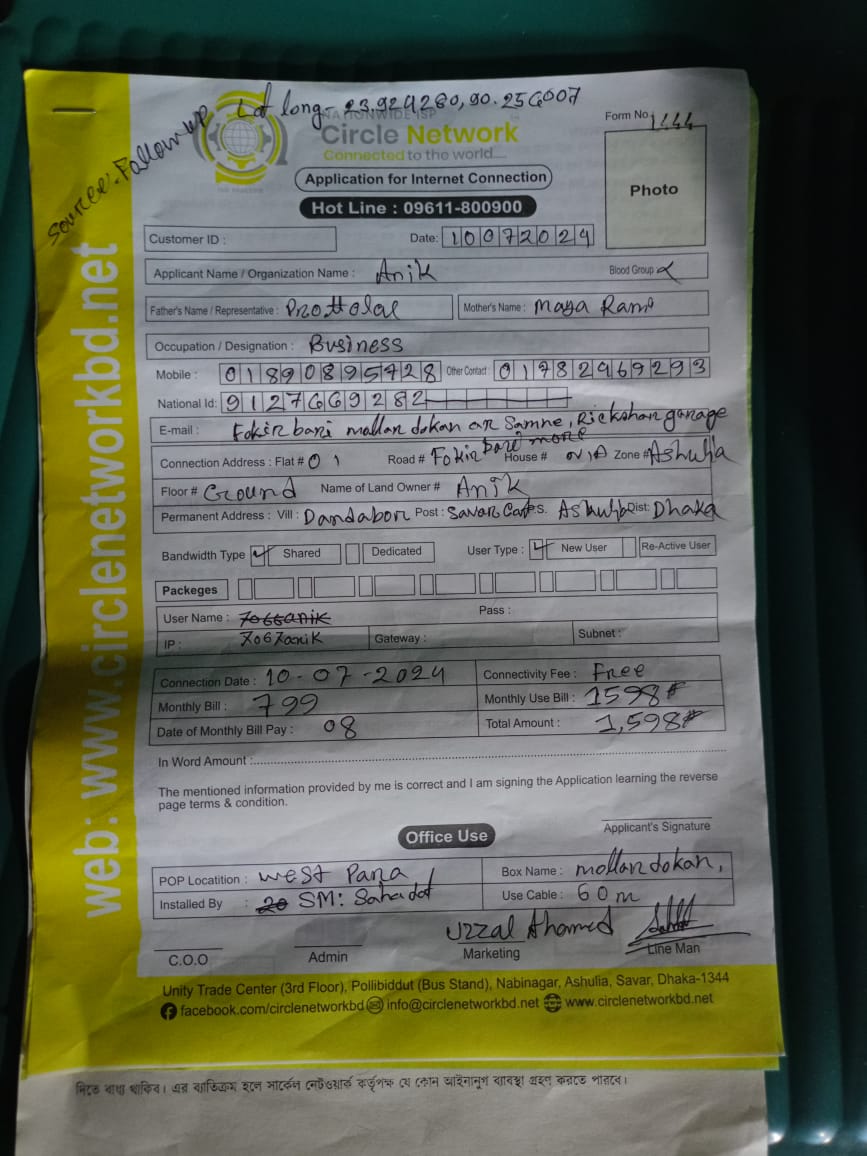 Lat long- 23.929280, 90.256007
Source: Follow up
NATIONWIDE ISP
Circle Network
Connected to the world....
Form No 1444
Application for Internet Connection
Photo
Hot Line : 09611-800900
Customer ID :
Date: 10072024
Applicant Name / Organization Name : Anik
Blood Group
Father's Name / Representative : Prottolal Mother's Name : Maya Rani
Occupation / Designation : Business
Mobile : 01890895428 Other Contact : 01782969293
National Id: 9127669282
E-mail : Fokir bari mallan dokan ar Samne, Rickshan garage
Connection Address : Flat # 01 Road # Fokir bari more House # Zone # Ashulia
Floor # Ground Name of Land Owner # Anik
Permanent Address : Vill : Dandabor Post : Savar Cant P.S. Ashulia Dist: Dhaka
Bandwidth Type Shared Dedicated User Type : New User Re-Active User
Packeges
User Name : 7066anik Pass :
IP : 7067anik Gateway : Subnet :
Connection Date : 10-07-2024 Connectivity Fee : Free
Monthly Bill : 799 Monthly Use Bill : 1598
Date of Monthly Bill Pay : 08 Total Amount : 1,598
In Word Amount :
The mentioned information provided by me is correct and I am signing the Application learning the reverse
page terms & condition.
Applicant's Signature
Office Use
POP Locatition : West Para Box Name : mollandokan,
Installed By : SM: Sahadot Use Cable : 60m
Uzzal Ahamed
C.O.O Admin Marketing Line Man
Unity Trade Center (3rd Floor), Pollibiddut (Bus Stand), Nabinagar, Ashulia, Savar, Dhaka-1344
facebook.com/circlenetworkbd info@circlenetworkbd.net www.circlenetworkbd.net
web: www.circlenetworkbd.net
দিতে বাধ্য থাকিব। এর ব্যতিক্রম হলে সার্কেল নেটওয়ার্ক কর্তৃপক্ষ যে কোন আইনানুগ ব্যবস্থা গ্রহণ করতে পারবে।